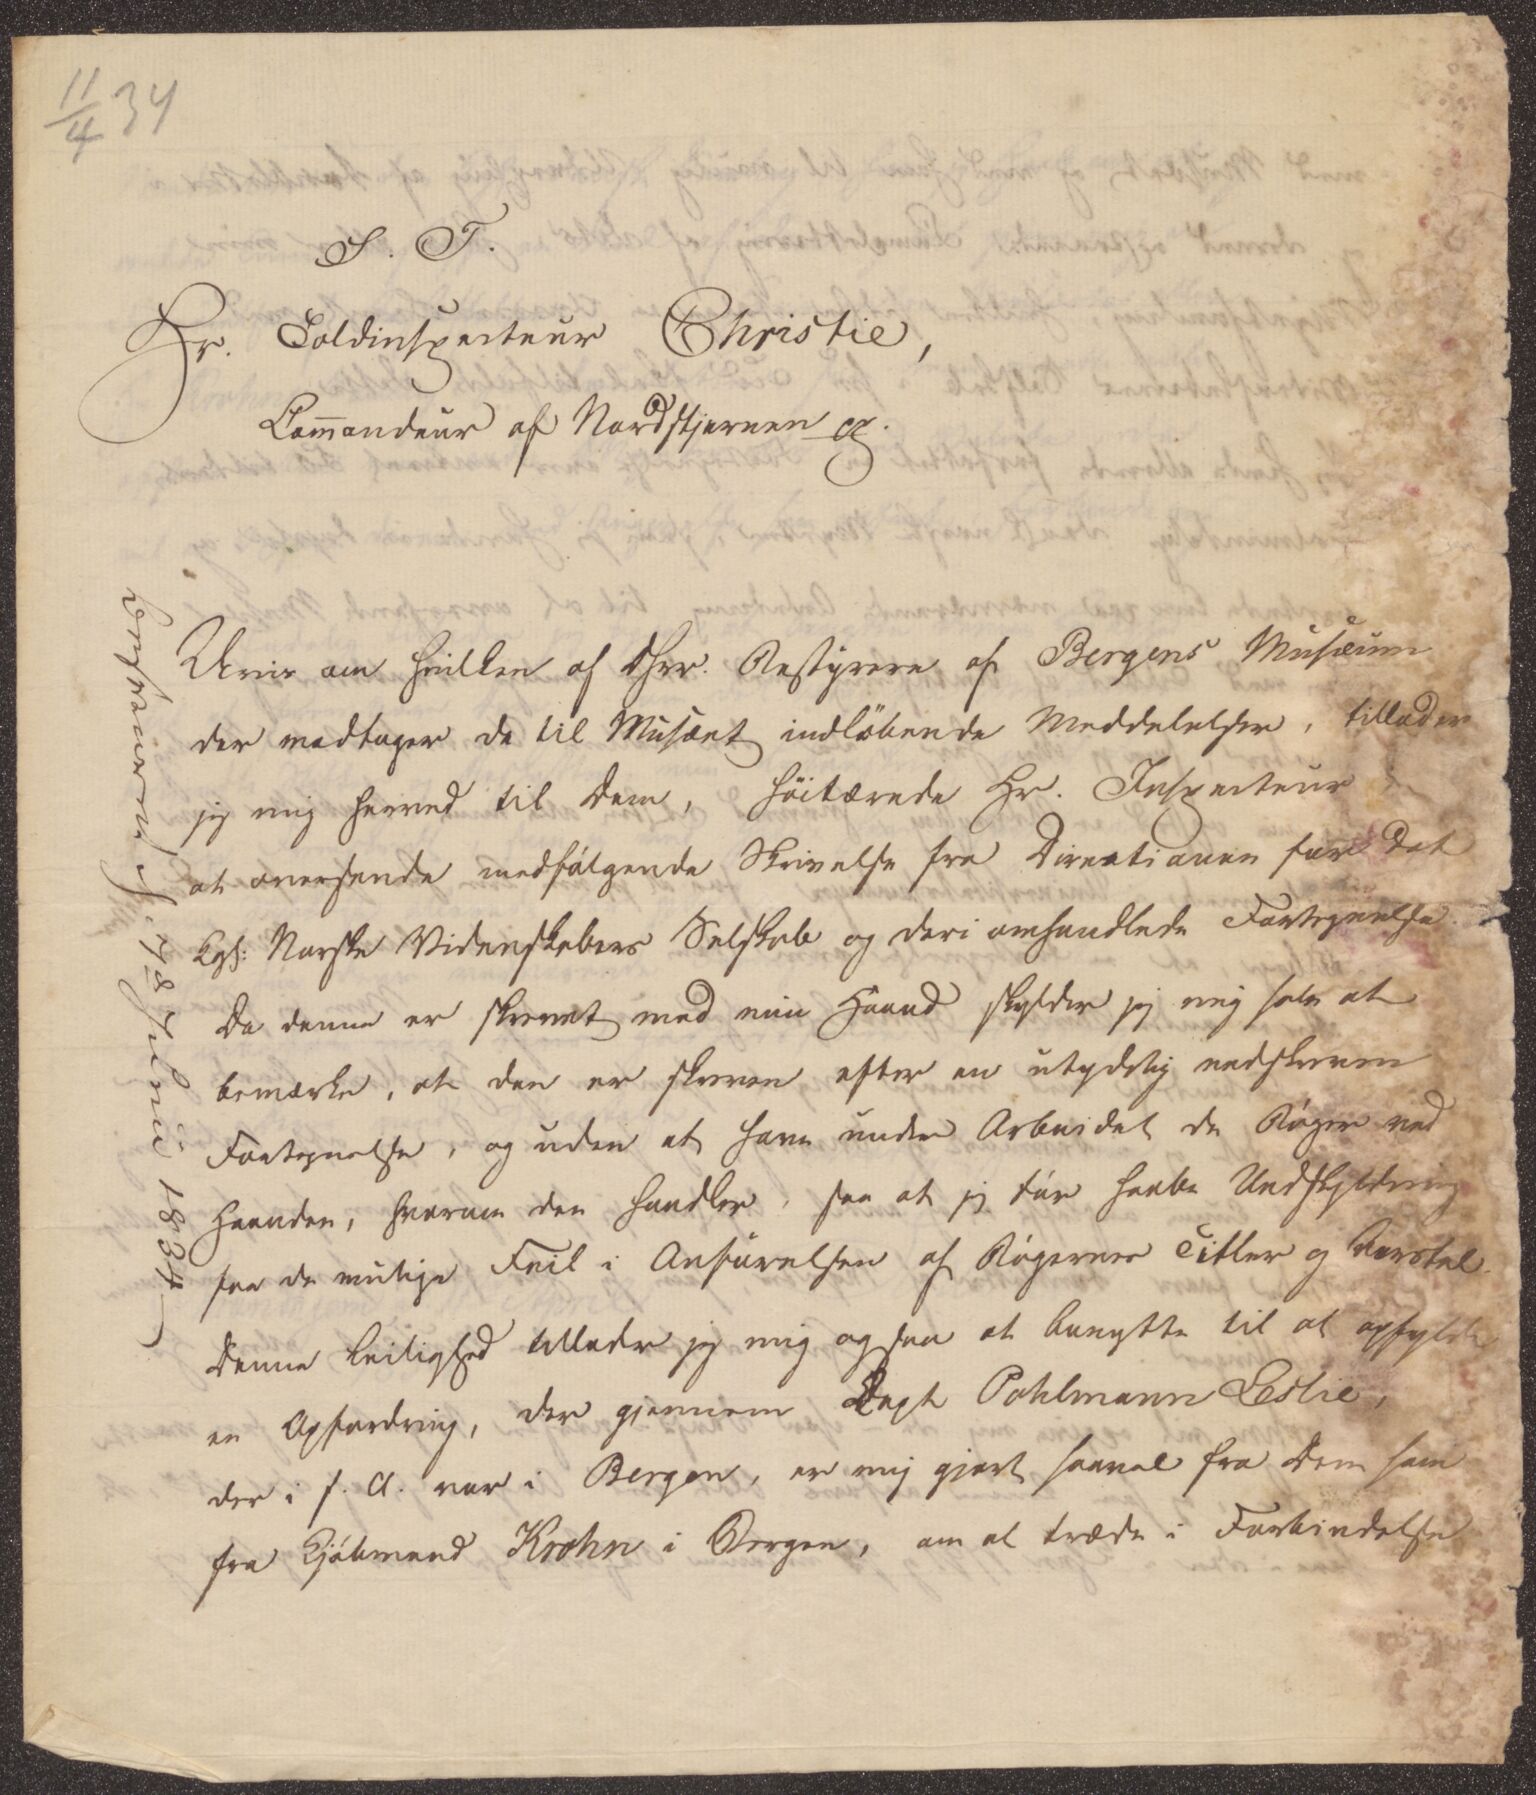 11/4 34
S. T.
Hr. Toldinspecteur Christie,
Commandeur af Nordstjernen ꝛc.
Uvis om hvilken af Dhrr. Bestyrere af Bergens Musæum
der modtager de til Musæet indløbende Meddelelser, tillader
jeg mig herved til Dem, høitærede Hr. Inspecteur
at oversende medfølgende Skrivelse fra Directionen for det
Kgl: Norske Videnskabers Selskab og deri omhandlede Fortegnelse.
Da denne er skrevet med min Haand skylder jeg mig selv at
bemærke, at den er skreven efter en utydelig nedskreven
Fortegnelse, og uden at have under Arbeidet de Bøger ved
Haanden, hvorom den handler, saa at jeg tør haabe Undskyldning
for de mulige Feil i Anførelsen af Bøgernes Titler og Antal.
Denne Leilighed tillader jeg mig ogsaa at benytte til at opfylde
en Opfordring, der gjennem Capt Pohlmann Leslie,
der i f. A. var i Bergen, er mig gjort saavel fra Dem som
fra Kjøbmand Krohn i Bergen, om at træde i Forbindelse
Besvaret d. 28 Juni 1834